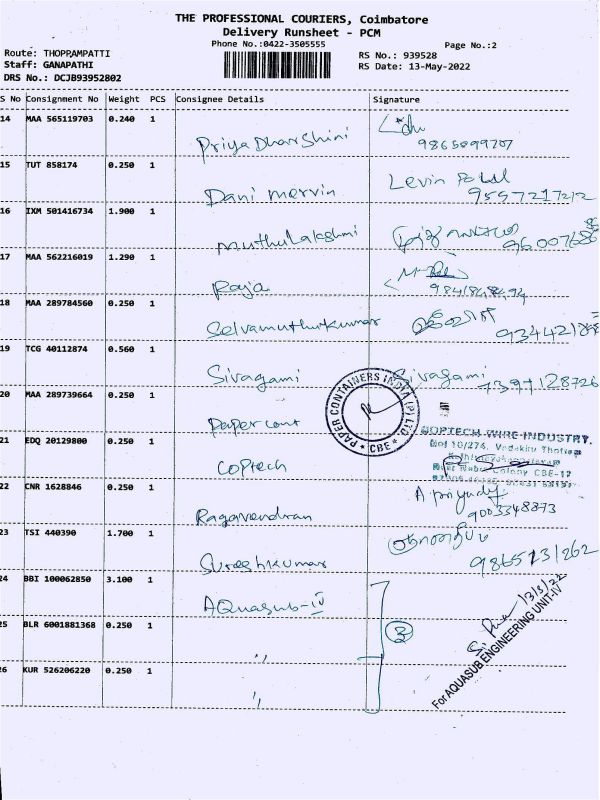 THE PROFESSIONAL COURIERS, Coimbatore
Delivery Runsheet - PCM
Phone No.:0422-3505555
Page No.:2
Route: THOPRAMPATTI
Staff: GANAPATHI
DRS No.: DCJB93952802
RS No.: 939528
RS Date: 13-May-2022
S No Consignment No Weight PCS Consignee Details Signature
14 MAA 565119703 0.240 1
PriyaDharshini 9865099707
15 TUT 858174 0.250 1
Dani mervin Levin 9597217212
16 IXM 501416734 1.900 1
muthulakshmi
17 MAA 562216019 1.290 1
Raja
18 MAA 289784560 0.250 1
Selvamuthukumar
19 TCG 40112874 0.560 1
Sivagami Sivagami 7397128726
20 MAA 289739664 0.250 1
Paper cont
PAPER CONTAINERS INDIA (P) LTD
* CBE *
21 EDQ 20129800 0.250 1
Coptech
COPTECH WIRE INDUSTRY.
No: 10/274, Vadakku Thottam
Colony CBE-17
22 CNR 1628846 0.250 1
Ragavendran 9003348873
23 TSI 440390 1.700 1
Sureshkumar
24 BBI 100062850 3.100 1
AQuasub-IV
25 BLR 6001881368 0.250 1
,, 3
26 KUR 526206220 0.250 1
,,
13/5/22
For AQUASUB ENGINEERING UNIT-IV